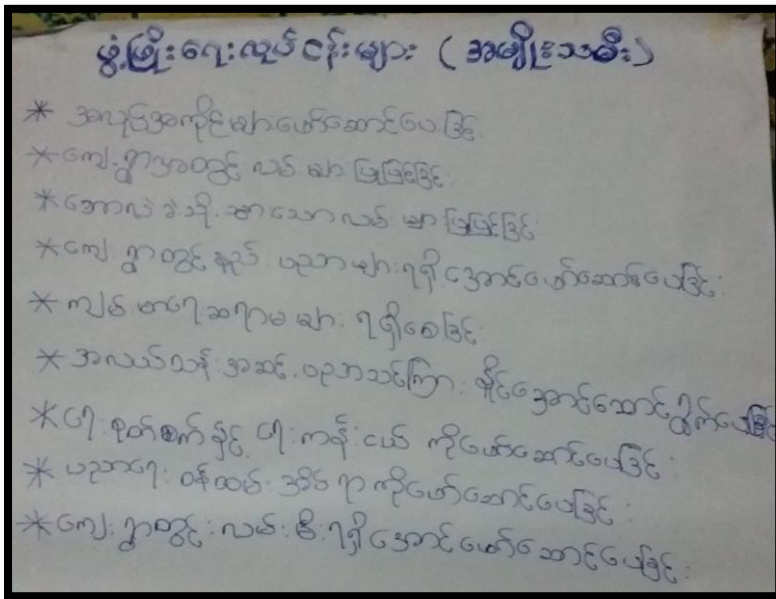 ဖွံ့ဖြိုးရေးလုပ်ငန်းများ (အမျိုးသမီး)
* အလုပ်အကိုင်များဖော်ဆောင်ပေးခြင်း
* ကျေးရွာအတွင်းလမ်းများပြုပြင်ခြင်း
* တောလဲခဲသို့သွားသောလမ်းများပြုပြင်ခြင်း
* ကျေးရွာတွင်နည်းပညာများရရှိအောင်ဖော်ဆောင်ပေးခြင်း
* ကျန်းမာရေးဆရာမများရရှိစေခြင်း
* အလယ်တန်းအဆင့်ပညာသင်ကြားနိုင်အောင်ဆောင်ရွက်ပေးခြင်း
* ရေစုပ်စက်နှင့်ရေကန်ငယ်ကိုဖော်ဆောင်ပေးခြင်း
* ပညာရေးဝန်ထမ်းအိမ်ရာကိုဖော်ဆောင်ပေးခြင်း
* ကျေးရွာတွင်းလမ်းမီးရရှိအောင်ဖော်ဆောင်ပေးခြင်း